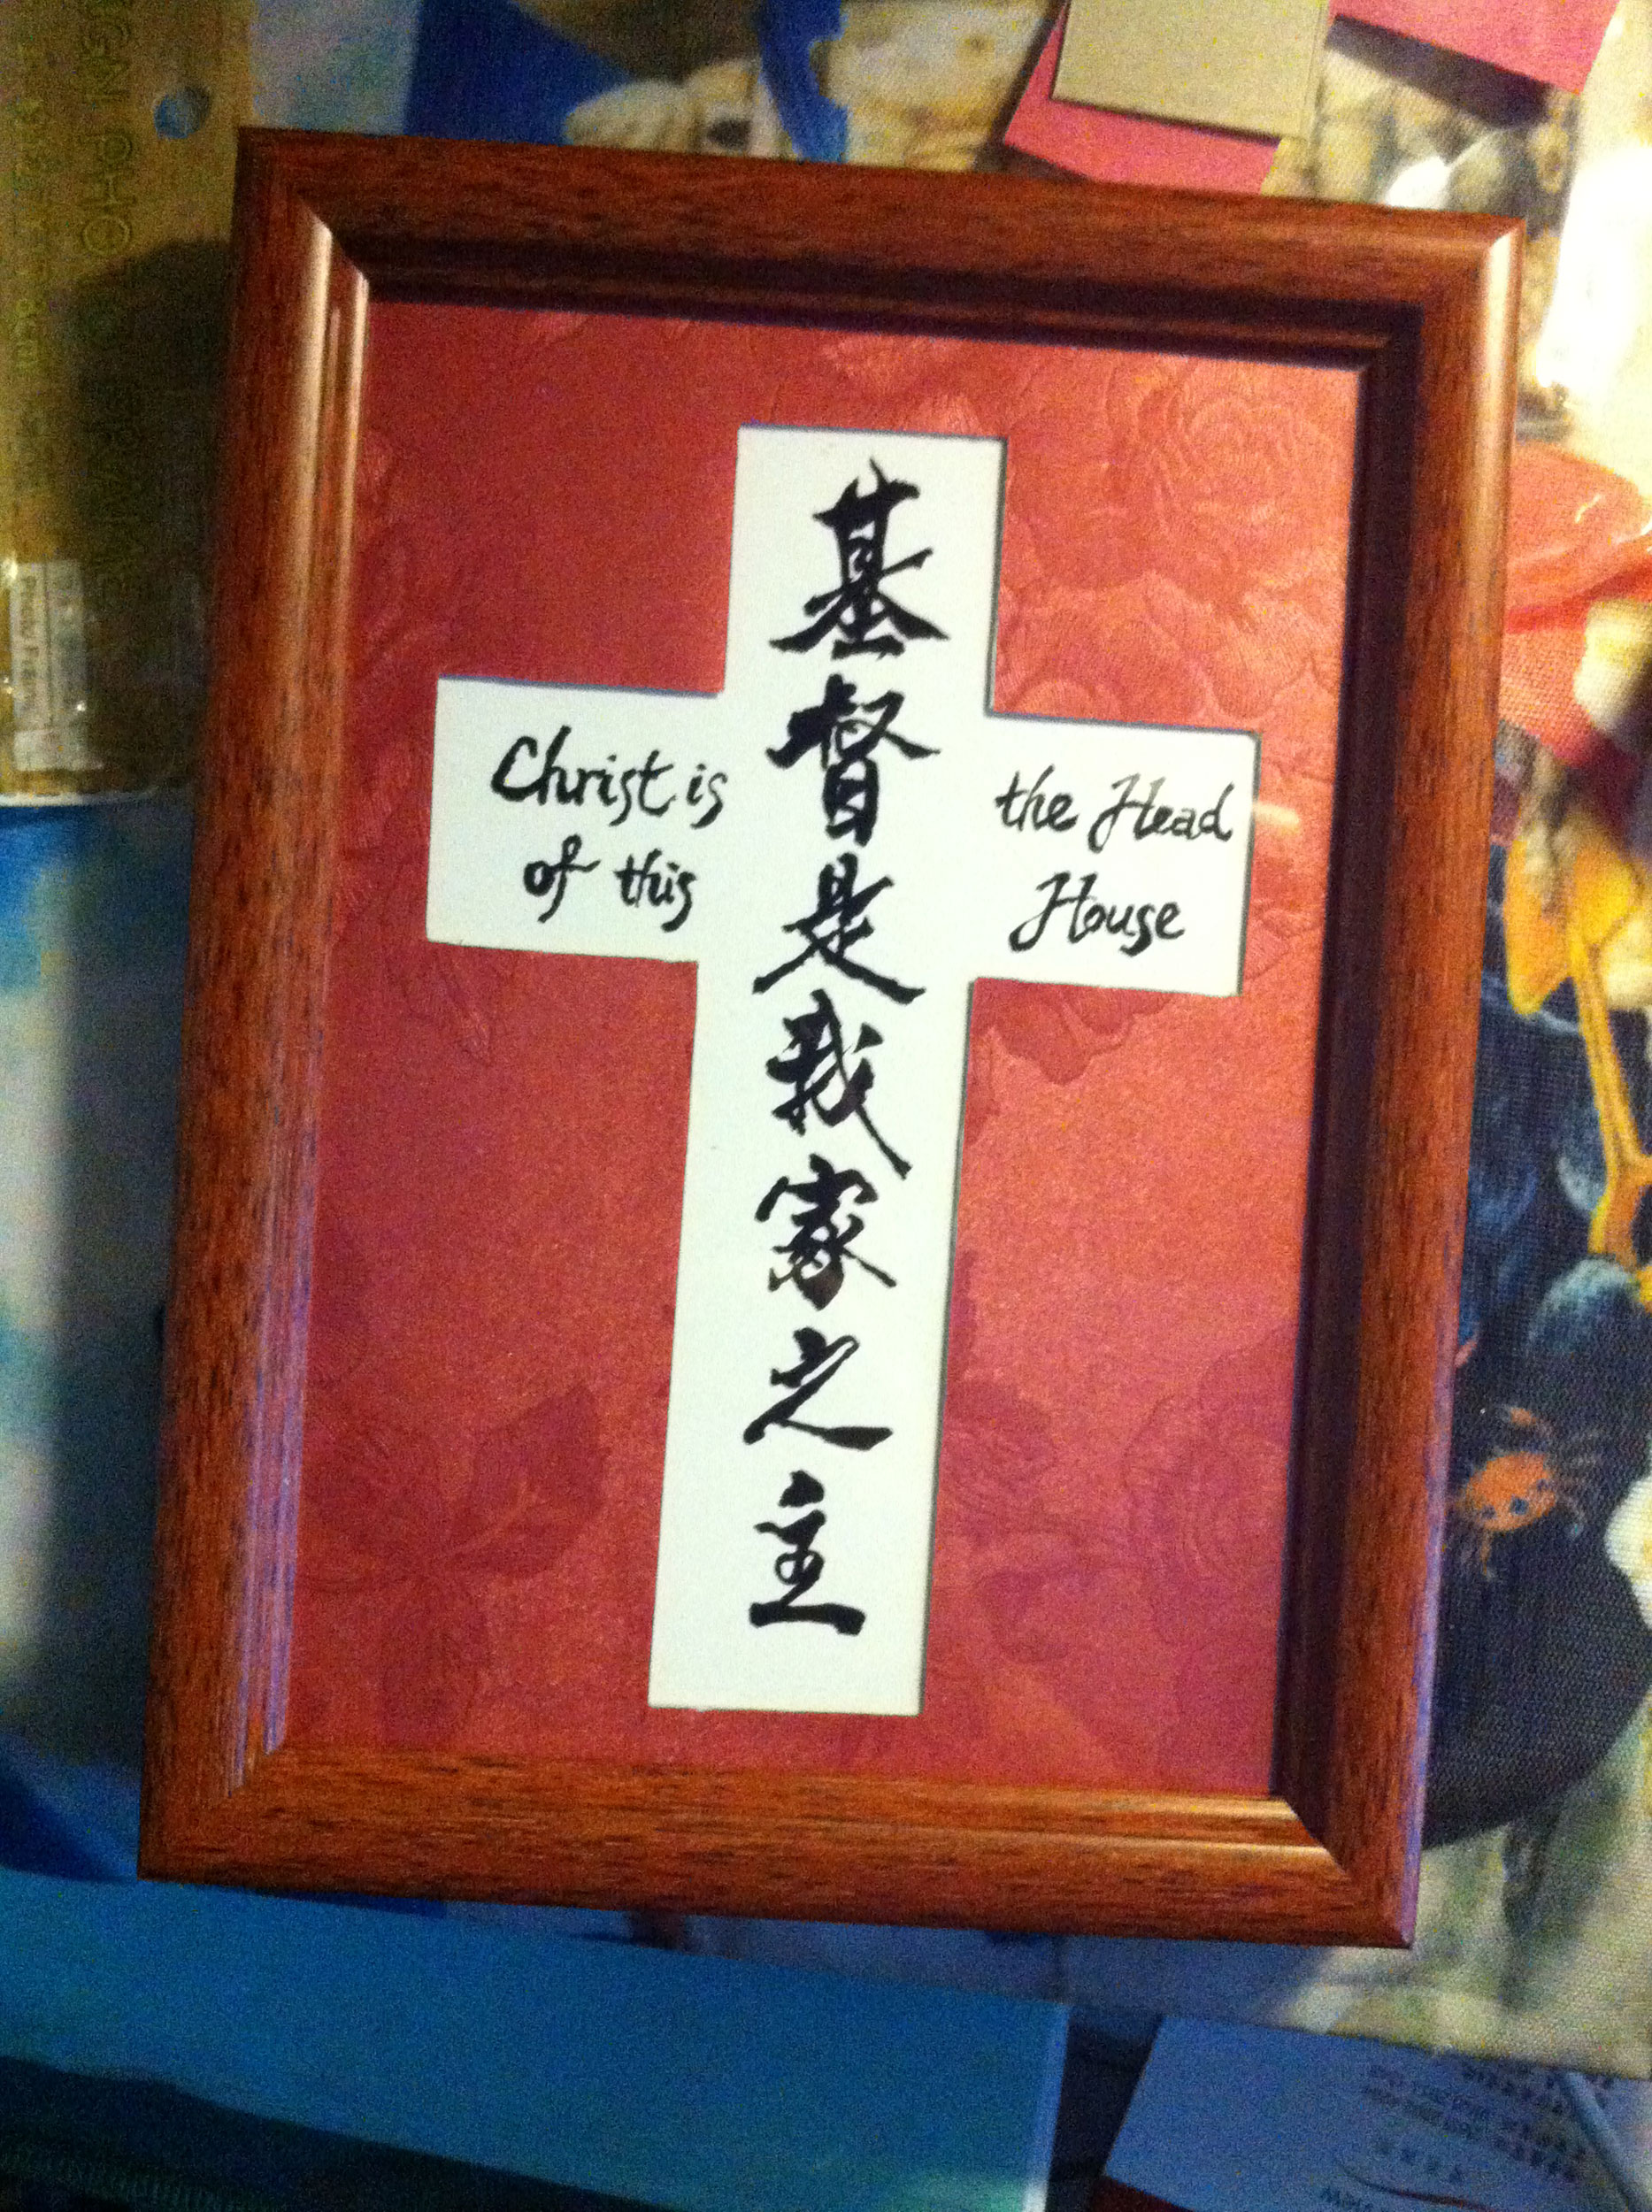 基督是我家之主
Christ is the Head
of this House